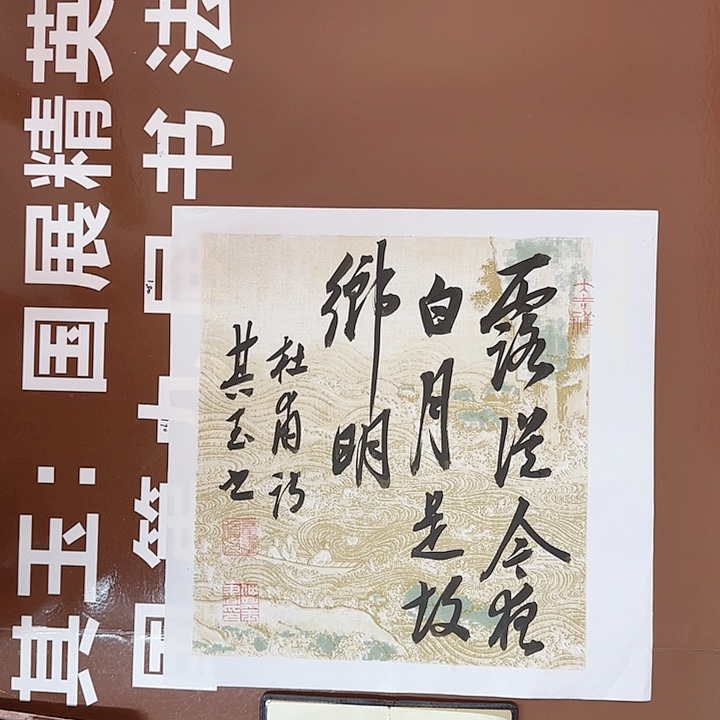 露从今夜
白月是故
鄉明
杜甫诗
其玉书
其玉：国展精英
国第九回书法